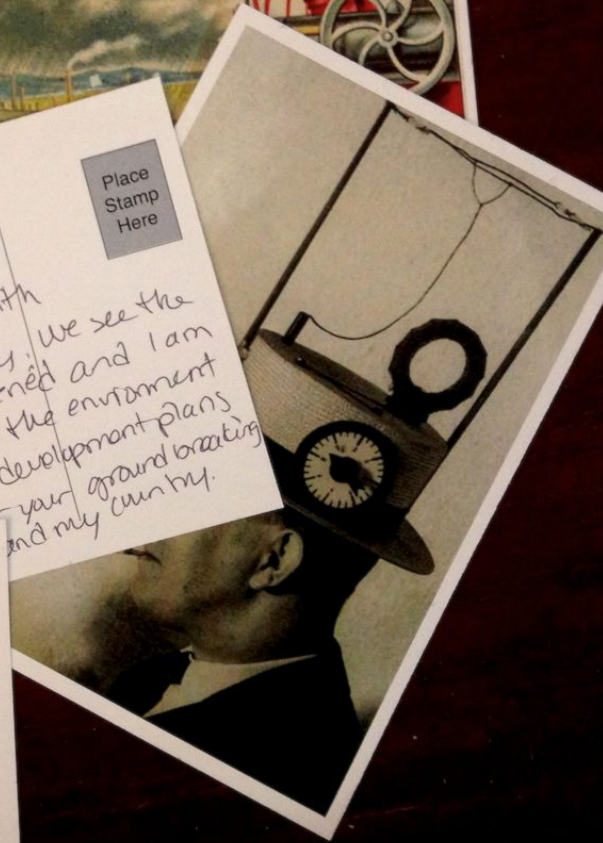 Place
Stamp
Here
ith
y. We see the
ened and I am
the enviroment
development plans
your ground breaking
and my country.